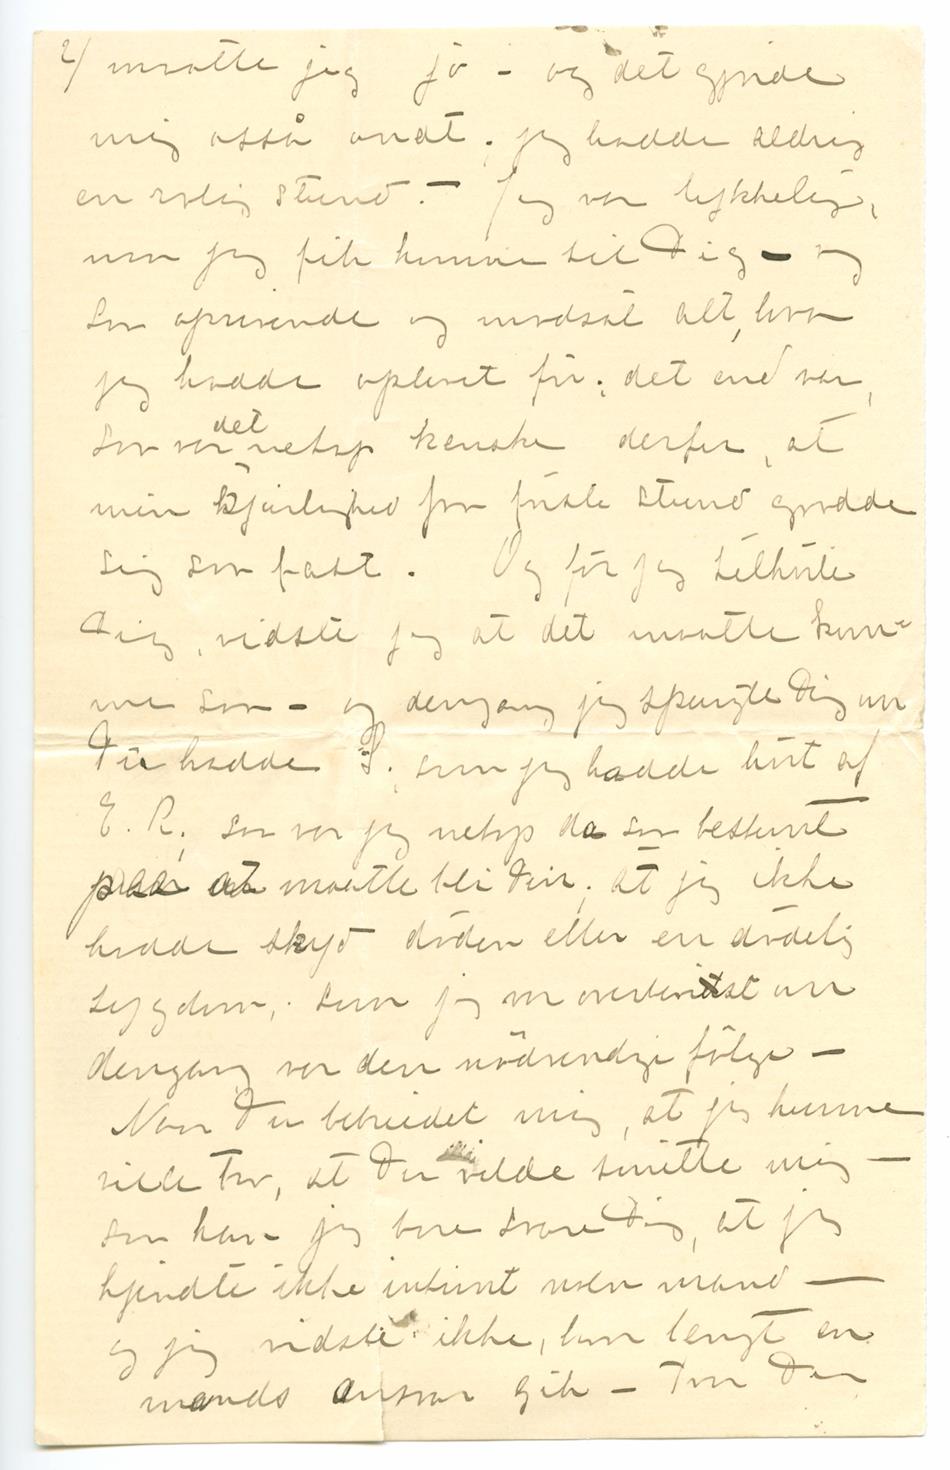 2/ maatte jeg jo - og det gjorde
mig også ondt; jeg hadde aldrig
en rolig stund. - Jeg var lykkelig,
naar jeg fik komme til Dig - og
saa oprivende og modsat alt, hva
jeg hadde oplevet før; det end var,
saa var det netop kanske derfor, at
min kjærlighed fra første stund grodde
sig saa fast. Og før jeg tilhørte
Dig, vidste jeg at det maatte kom-
me saa - og dengang jeg spurgte Dig om
Du hadde S., som jeg hadde hørt af
E. R., saa var jeg netop da saa bestemt
paa at maatte bli Din; at jeg ikke
hadde skyd døden eller en dødelig
sygdom; som jeg var overbevist om
dengang var den nødvendige følge -
Naar Du bebreidet mig, at jeg kunne
ville tro, at Du vilde smitte mig -
saa kan jeg bare svare Dig, at jeg
kjendte ikke intimt noen mand -
og jeg vidste ikke, hvor langt en
mands ansvar gik - For Du